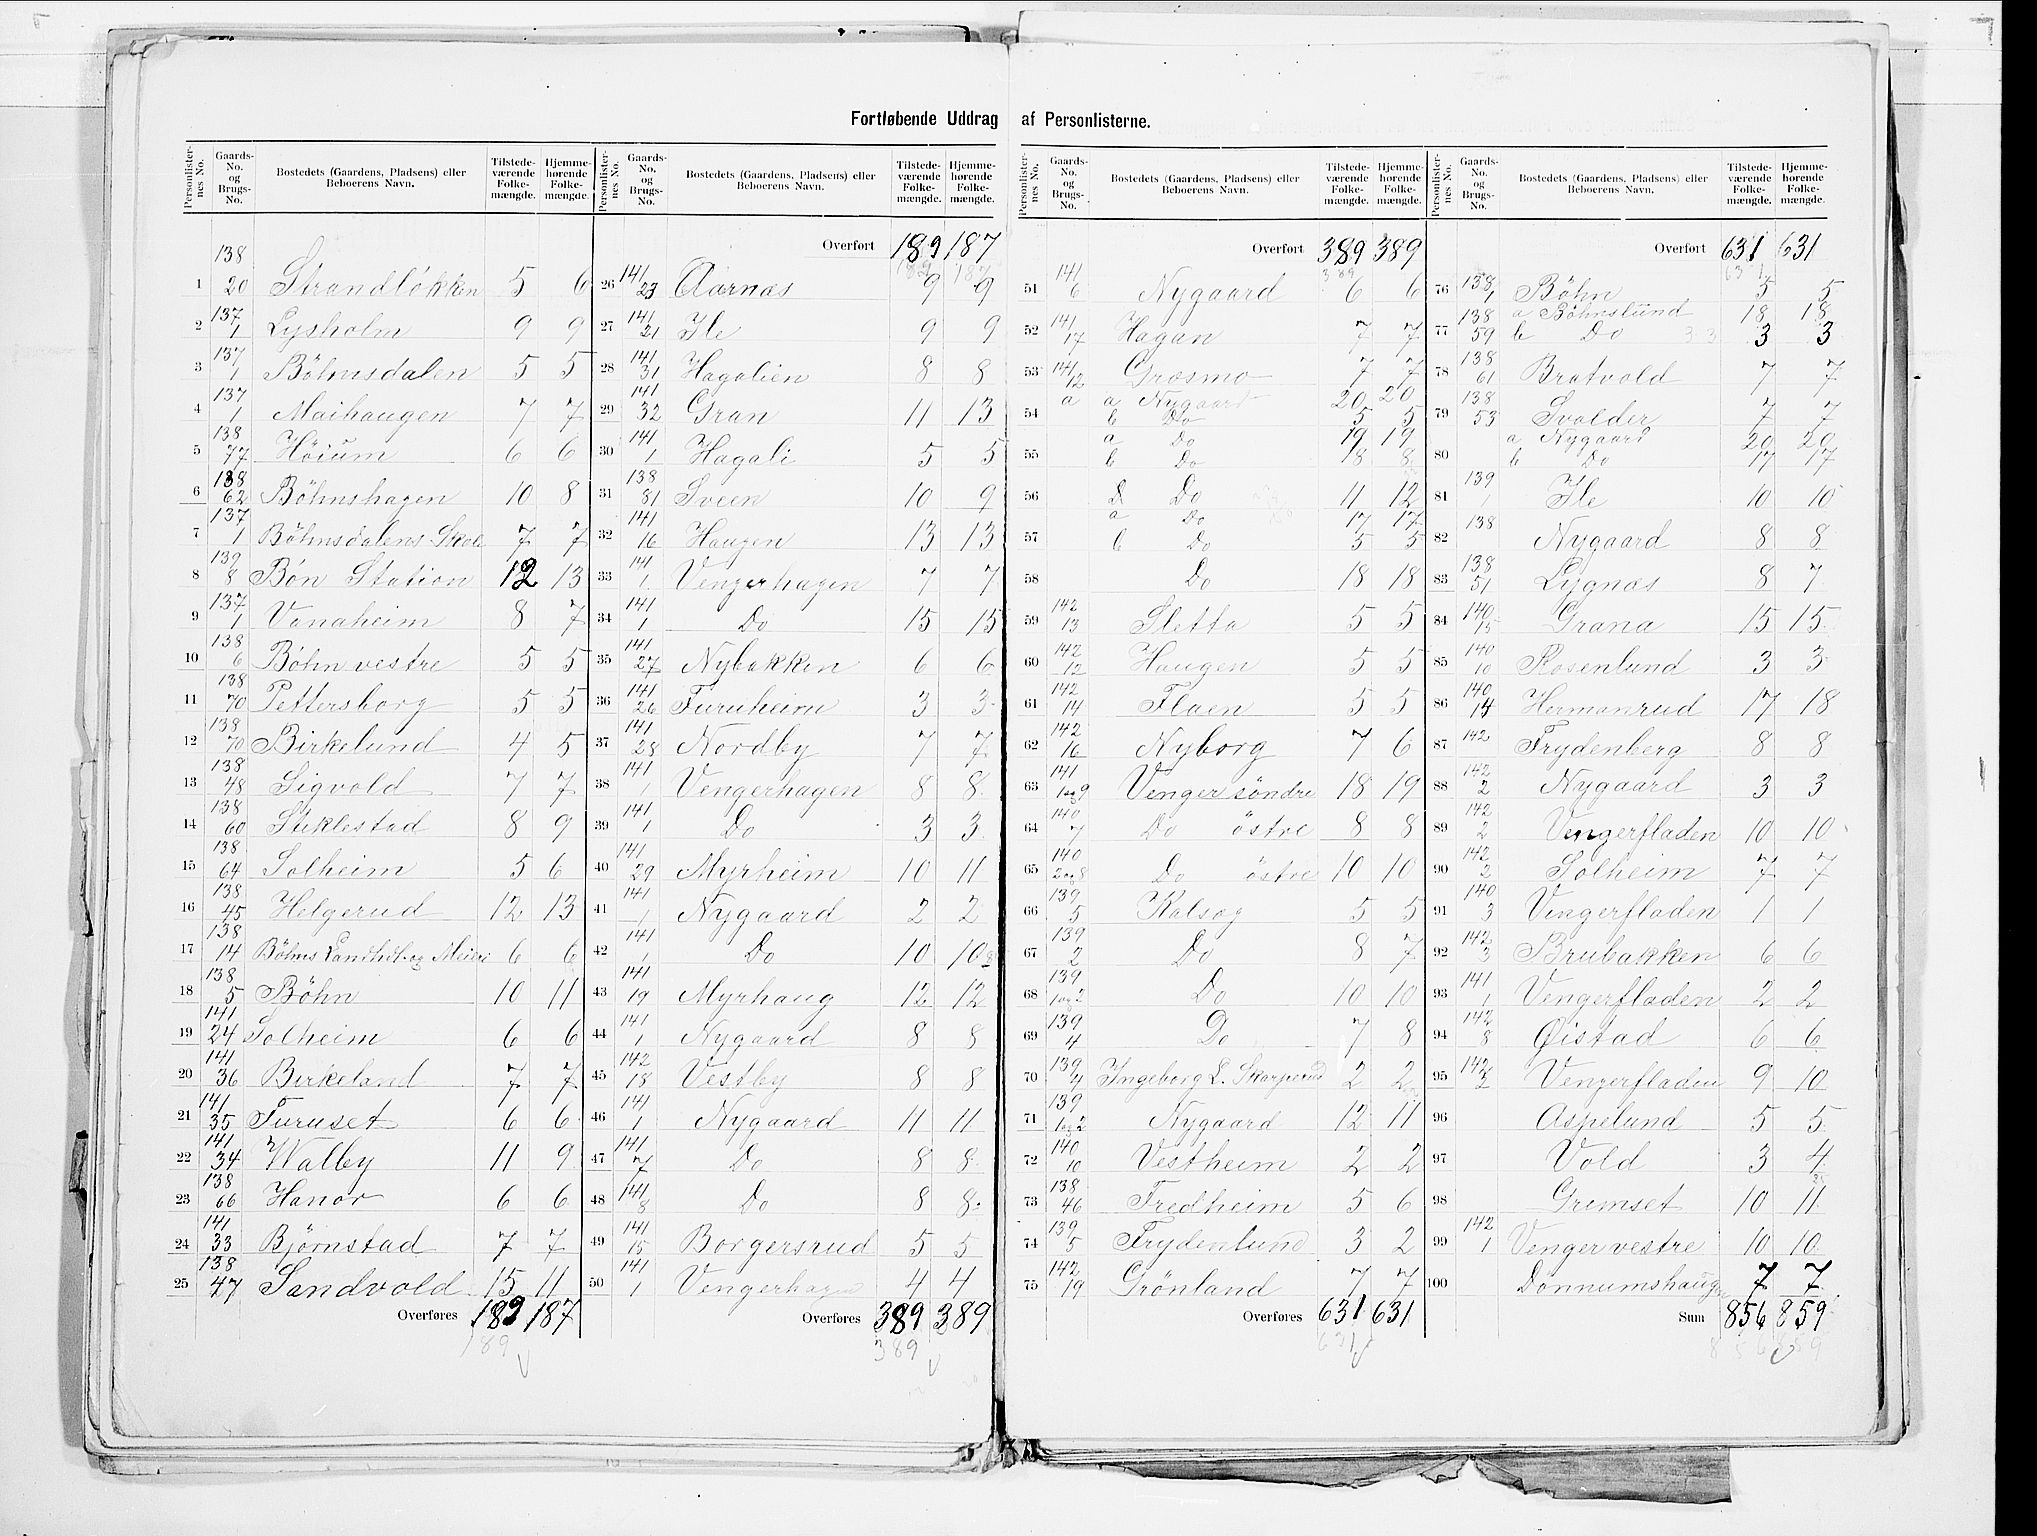 Fortløbende Uddrag af Personlisterne.
Personlisternes No. Gaards-No. og Brugs-No. Bostedets (Gaardens, Pladsens) eller Beboerens Navn. Tilstedeværende Folkemængde. Hjemmehørende Folkemængde.
138
1 20 Strandløkken 5 6
2 137 1 Lysholm 9 9
3 137 1 Böhnsdalen 5 5
4 137 1 Maihaugen 7 7
5 138 77 Höium 6 6
6 138 62 Böhnshagen 10 8
7 137 1 Böhnsdalens Skole 7 7
8 139 8 Bön Station 12 13
9 137 1 Vanaheim 8 7
10 138 6 Böhn vestre 5 5
11 138 70 Pettersborg 5 5
12 138 70 Birkelund 4 5
13 138 48 Sigvold 7 7
14 138 60 Stiklestad 8 9
15 138 64 Solheim 5 6
16 138 45 Helgerud 12 13
17 138 14 Böhns Landhdl. og Meieri 6 6
18 138 5 Böhn 10 11
19 141 24 Solheim 6 6
20 141 36 Birkeland 7 7
21 141 35 Furuset 6 6
22 141 34 Walby 11 9
23 138 66 Hanor 6 6
24 141 33 Bjørnstad 7 7
25 138 47 Sandvold 15 11
Overføres 189 187
189
Personlisternes No. Gaards-No. og Brugs-No. Bostedets (Gaardens, Pladsens) eller Beboerens Navn. Tilstedeværende Folkemængde. Hjemmehørende Folkemængde.
Overført 189 187
189 187
26 141 23 Aarnæs 9 9
27 141 21 Ile 9 9
28 141 31 Hagalien 8 8
29 141 32 Gran 11 13
30 141 1 Hagali 5 5
31 138 81 Sveen 10 9
32 141 16 Haugen 13 13
33 141 1 Vengerhagen 7 7
34 141 1 Do 15 15
35 141 27 Nybakken 6 6
36 141 26 Furuheim 3 3
37 141 28 Nordby 7 7
38 141 1 Vengerhagen 8 8
39 141 1 Do 3 3
40 141 29 Myrheim 10 11
41 141 1 Nygaard 2 2
42 141 1 Do 10 10
43 141 19 Myrhaug 12 12
44 141 1 Nygaard 8 8
45 142 18 Vestby 8 8
46 141 1 Nygaard 11 11
47 141 7 Do 8 8
48 141 8 Do 8 8
49 141 15 Borgersrud 5 5
50 141 1 Vengerhagen 4 4
Overføres 389 389
389
Personlisternes No. Gaards-No. og Brugs-No. Bostedets (Gaardens, Pladsens) eller Beboerens Navn. Tilstedeværende Folkemængde. Hjemmehørende Folkemængde.
Overført 389 389
389
51 141 6 Nygaard 6 6
52 141 17 Hagan 7 7
53 141 12 Græsmo 7 7
a a Nygaard 20 20
54 b Do 5 5
a Do 19 19
55 b Do 18 8
56 Do 11 12
a Do 17 17
57 b Do 5 5
58 Do 18 18
59 142 13 Sletta 5 5
60 142 12 Haugen 5 5
61 142 14 Flaen 5 5
62 142 16 Nyborg 7 6
63 141 1 og 9 Venger söndre 18 19
64 140 7 Do östre 8 8
65 140 2 og 8 Do östre 10 10
66 139 5 Kalsøg 5 5
67 139 2 Do 8 7
68 139 1 og 3 Do 10 10
69 139 4 Do 7 8
70 139 4 Ingeborg L. Skarperud 2 2
71 139 1 og 2 Nygaard 12 11
72 140 10 Vestheim 2 2
73 138 46 Fredheim 5 6
74 139 5 Frydenlund 3 2
75 142 19 Grönland 7 7
Overføres 631 631
631
Personlisternes No. Gaards-No. og Brugs-No. Bostedets (Gaardens, Pladsens) eller Beboerens Navn. Tilstedeværende Folkemængde. Hjemmehørende Folkemængde.
Overført 631 631
631
76 138 1 Böhn 5 5
138 a Böhnslund 18 18
77 59 b Do 3 3
78 138 61 Bratvold 7 7
79 138 53 Svolder 7 7
a Nygaard 20 20
80 b Do 17 17
81 139 1 Ile 10 10
82 138 Nygaard 8 8
83 138 51 Lygnæs 8 7
84 140 15 Grana 15 15
85 140 10 Rosenlund 3 3
86 140 14 Hermanrud 17 18
87 142 Frydenberg 8 8
88 142 2 Nygaard 3 3
89 142 2 Vengerfladen 10 10
90 142 2 Solheim 7 7
91 140 3 Vengerfladen 1 1
92 142 3 Brubakken 6 6
93 141 1 Vengerfladen 2 2
94 142 8 Øistad 6 6
95 142 2 Vengerfladen 9 10
96 Aspelund 5 5
97 Vold 3 4
98 Grimset 10 11
99 142 1 Venger vestre 10 10
100 Dønnumshaugen 7 7
Sum 856 859
856 859